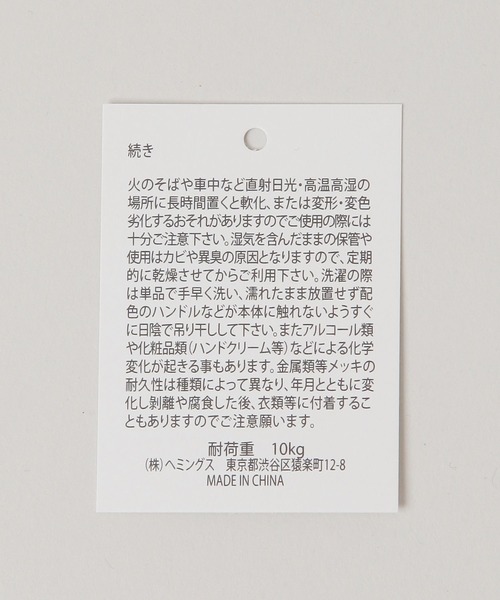 続き
火のそばや車中など直射日光・高温高湿の
場所に長時間置くと軟化、または変形・変色
劣化するおそれがありますのでご使用の際には
十分ご注意下さい。湿気を含んだままの保管や
使用はカビや異臭の原因となりますので、定期
的に乾燥させてからご利用下さい。洗濯の際
は単品で手早く洗い、濡れたまま放置せず配
色のハンドルなどが本体に触れないようすぐ
に日陰で吊り干しして下さい。またアルコール類
や化粧品類（ハンドクリーム等）などによる化学
変化が起きる事もあります。金属類等メッキの
耐久性は種類によって異なり、年月とともに変
化し剥離や腐食した後、衣類等に付着するこ
ともありますのでご注意願います。
耐荷重　10kg
（株）ヘミングス　東京都渋谷区猿楽町12-8
MADE IN CHINA